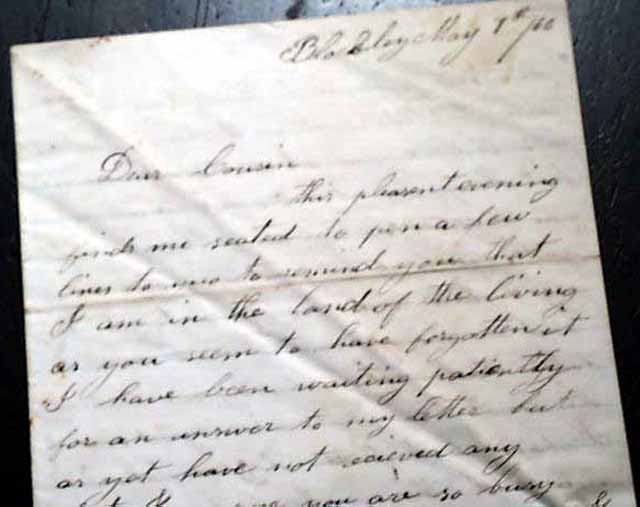 Blockley May 1st/60
Dear Cousin
this pleasent evening
finds me seated to pen a few
lines to you to remind you that
I am in the land of the living
as you seem to have forgotten it
I have been waiting patiently
for an answer to my letter but
as yet have not recieved any
you are so busy